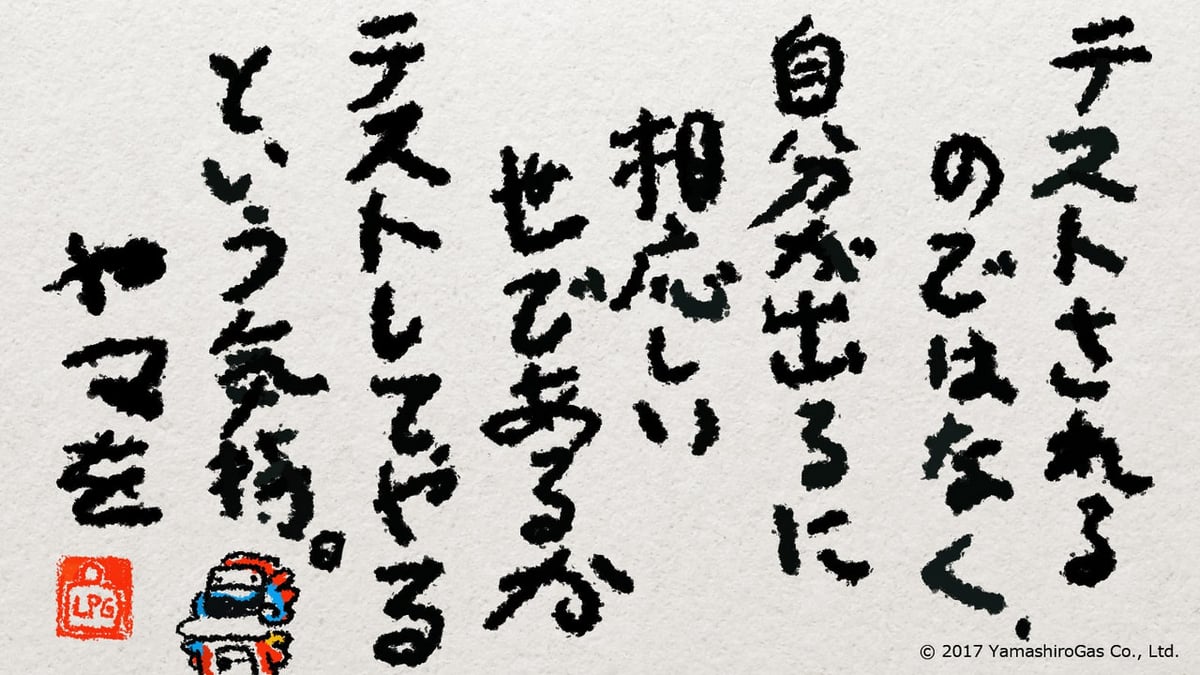 テストされる
のではなく、
自分が出るに
相応しい
世であるか
テストしてやる
という気持。
やマを
LPG
© 2017 YamashiroGas Co., Ltd.